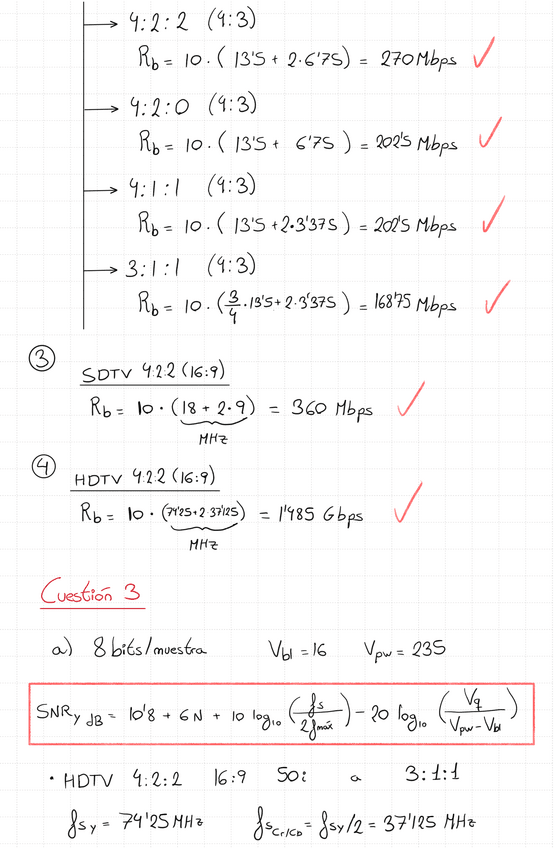 → 4:2:2 (4:3)
Rb = 10 · (13'5 + 2·6'75) = 270 Mbps ✓
→ 4:2:0 (4:3)
Rb = 10 · (13'5 + 6'75) = 202'5 Mbps ✓
→ 4:1:1 (4:3)
Rb = 10 · (13'5 + 2·3'375) = 202'5 Mbps ✓
→ 3:1:1 (4:3)
Rb = 10 · (3/4 · 13'5 + 2·3'375) = 168'75 Mbps ✓
③
SDTV 4:2:2 (16:9)
Rb = 10 · (18 + 2·9) = 360 Mbps ✓
MHz
④
HDTV 4:2:2 (16:9)
Rb = 10 · (74'25 + 2·37'125) = 1'485 Gbps ✓
MHz
Cuestión 3
a) 8 bits/muestra Vbl = 16 Vpw = 235
SNRy dB = 10'8 + 6N + 10 log10 (fs / 2fmáx) − 20 log10 (Vq / Vpw − Vbl)
· HDTV 4:2:2 16:9 50i a 3:1:1
fsy = 74'25 MHz fsCr/Cb = fsy/2 = 37'125 MHz